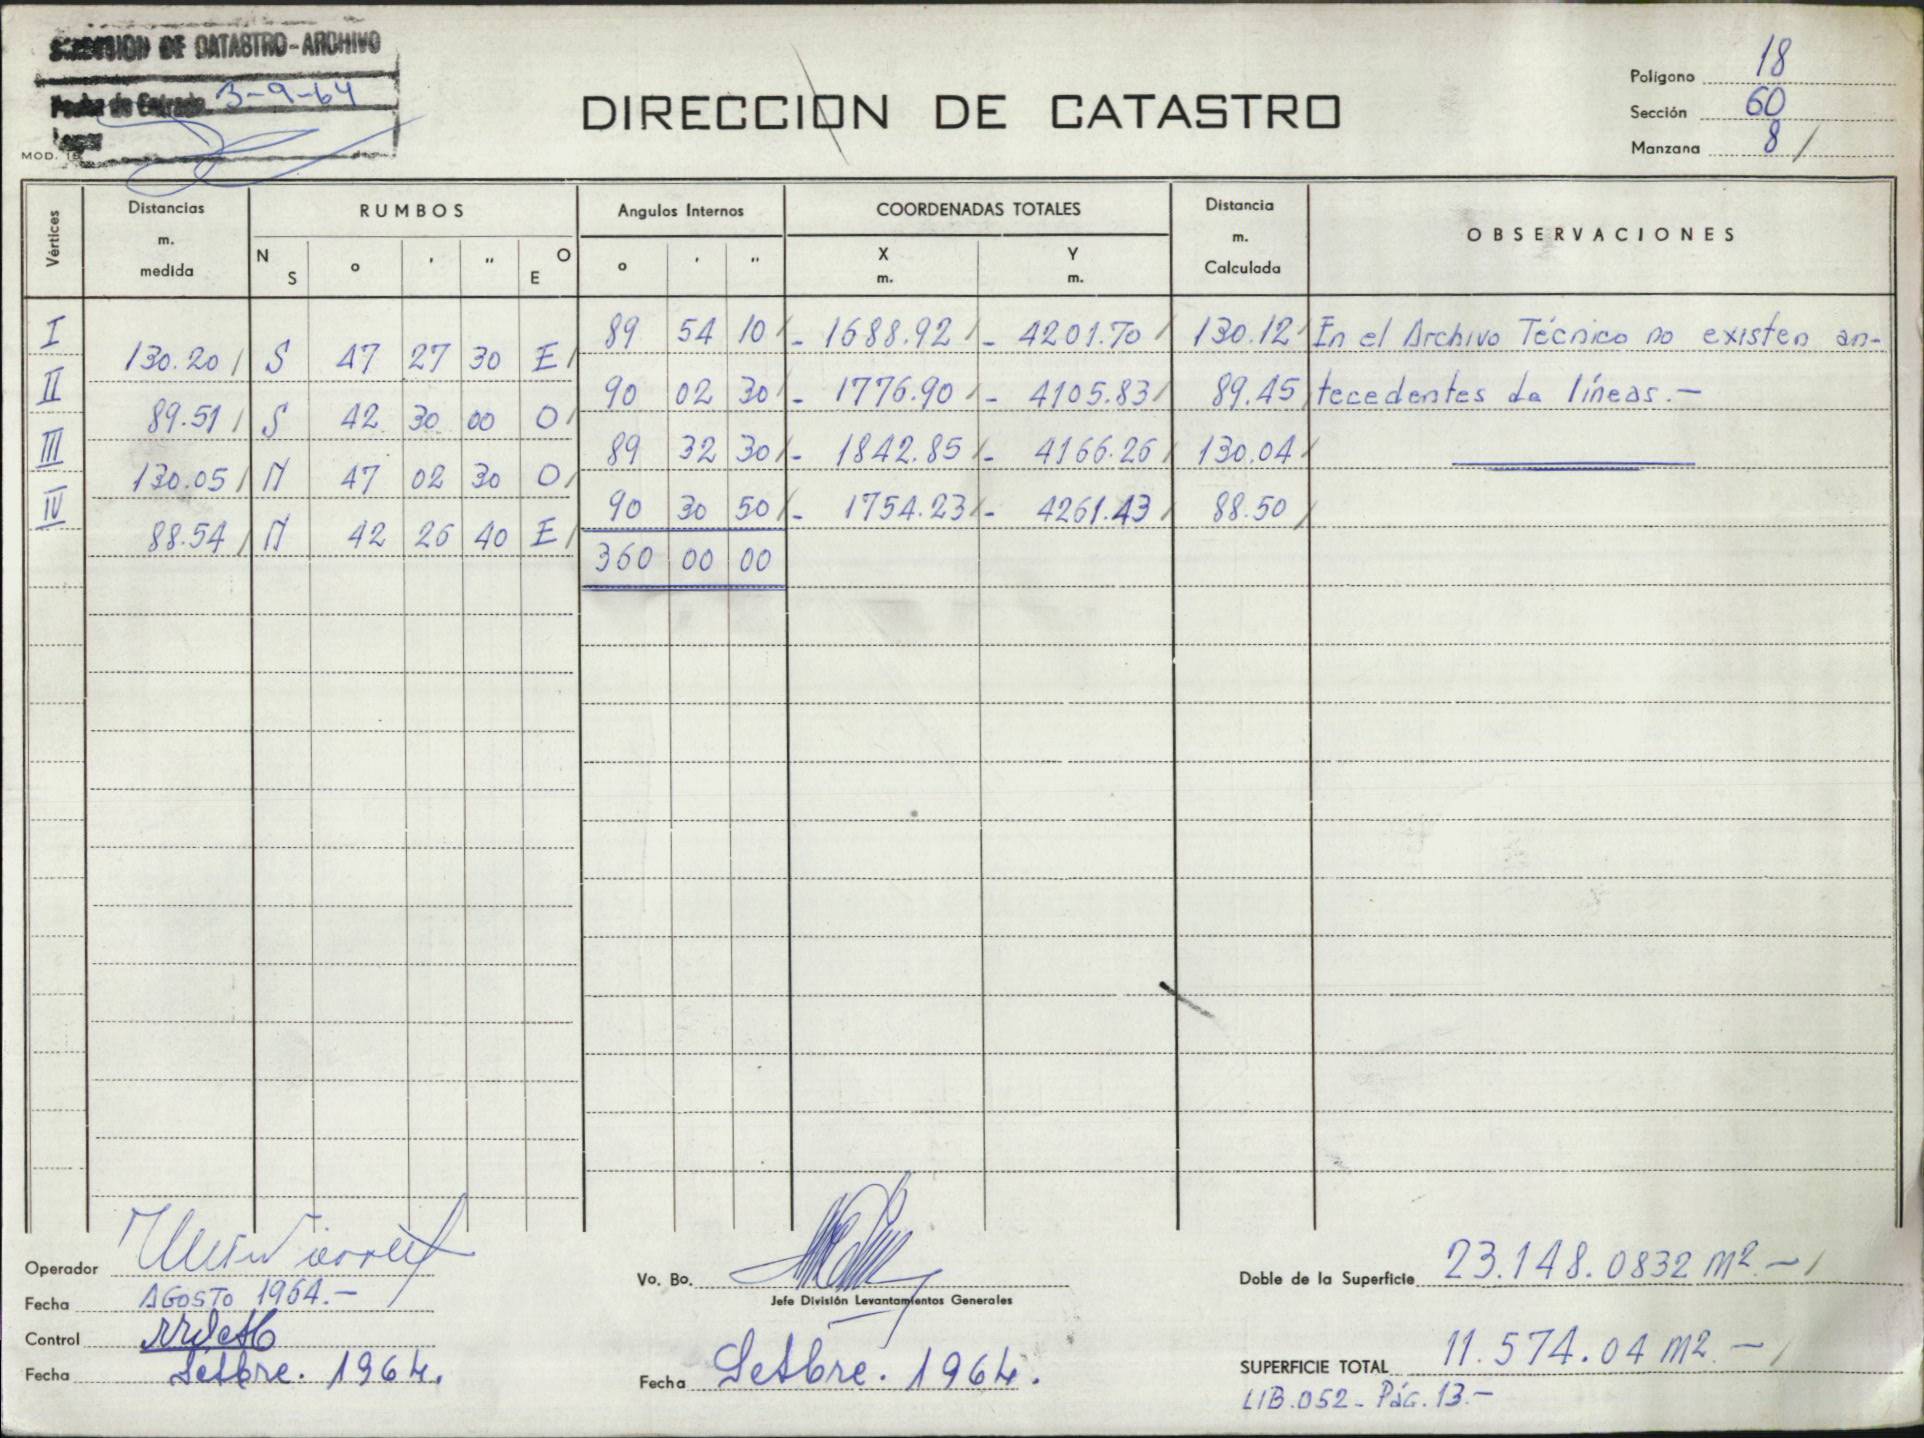 DIRECCION DE CATASTRO-ARCHIVO
Fecha de Entrada 3-9-64
MOD.
DIRECCION DE CATASTRO
Polígono 18
Sección 60
Manzana 8 /
Vértices
Distancias m. medida
RUMBOS
N S ° ' " O E
Angulos Internos
° ' "
COORDENADAS TOTALES
X m. Y m.
Distancia m. Calculada
OBSERVACIONES
I 89 54 10 / - 1688.92 / - 4201.70 / 130.12 / En el Archivo Técnico no existen an-
130.20 / S 47 27 30 E /
II 90 02 30 / - 1776.90 / - 4105.83 / 89.45 / tecedentes de líneas.-
89.51 / S 42 30 00 O /
III 89 32 30 / - 1842.85 / - 4166.26 / 130.04 /
130.05 / N 47 02 30 O /
IV 90 30 50 / - 1754.23 / - 4261.43 / 88.50 /
88.54 / N 42 26 40 E /
360 00 00
Operador
Fecha AGOSTO 1964.-
Control
Fecha Setbre. 1964.
Vo. Bo.
Jefe División Levantamientos Generales
Fecha Setbre. 1964.
Doble de la Superficie 23.148.0832 m2.- /
SUPERFICIE TOTAL 11.574.04 m2.- /
LIB.052- Pág.13.-